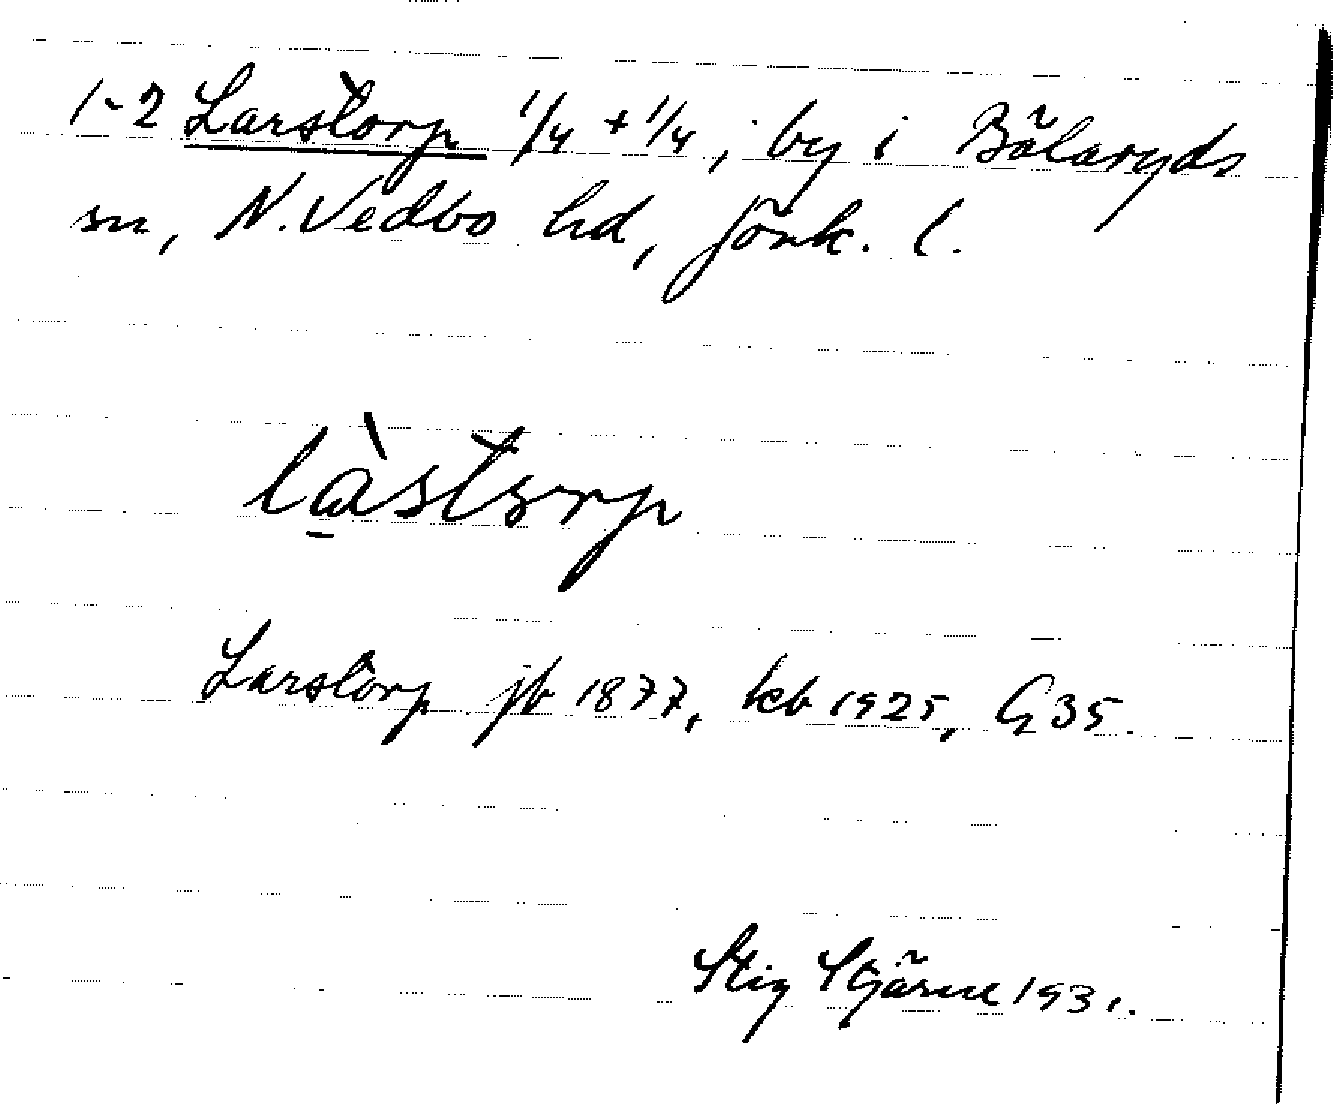 1-2 Larstorp 1/4 + 1/4, by i Bälaryds
sn, N. Vedbo hd, Jönk. l.
làstorp
Larstorp jb 1877, kb 1925, G 35.
Stig Stjärne 1931.